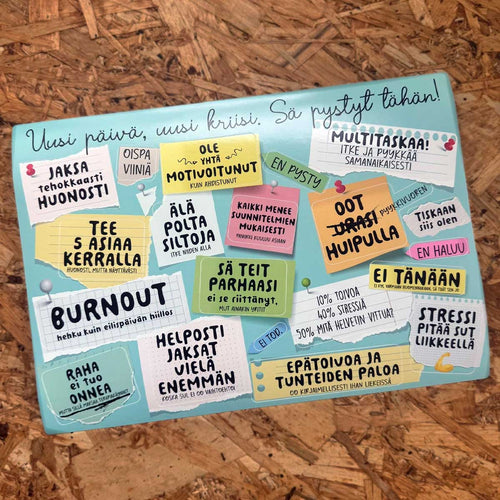 Uusi päivä, uusi kriisi. Sä pystyt tähän!
JAKSA
TEHOKKAASTI
HUONOSTI
OISPA
VIINIÄ
OLE
YHTÄ
MOTIVOITUNUT
KUIN AHDISTUNUT
EN PYSTY
MULTITASKAA!
ITKE JA PYYKKÄÄ
SAMANAIKAISESTI
TEE
5 ASIAA
KERRALLA
HUONOSTI, MUTTA NÄYTTÄVÄSTI
ÄLÄ
POLTA
SILTOJA
ITKE NIIDEN ALLA
KAIKKI MENEE
SUUNNITELMIEN
MUKAISESTI
PANIIKKI KUULUU ASIAAN
OOT
URASI PYYKKIVUOREN
HUIPULLA
TISKAAN
SIIS OLEN
EN HALUU
BURNOUT
hehku kuin eilispäivän hiillos
SÄ TEIT
PARHAASI
ei se riittänyt,
MUT AINAKIN YRITIT
EI TÄNÄÄN
10% TOIVOA
40% STRESSIÄ
50% MITÄ HELVETIN VITTUA?
EI TOD.
STRESSI
PITÄÄ SUT
LIIKKEELLÄ
RAHA
ei tuo
ONNEA
HELPOSTI
JAKSAT
VIELÄ
ENEMMÄN
KOSKA SUL EI OO VAIHTOEHTOI
EPÄTOIVOA JA
TUNTEIDEN PALOA
OO KIRJAIMELLISESTI IHAN LIEKEISSÄ